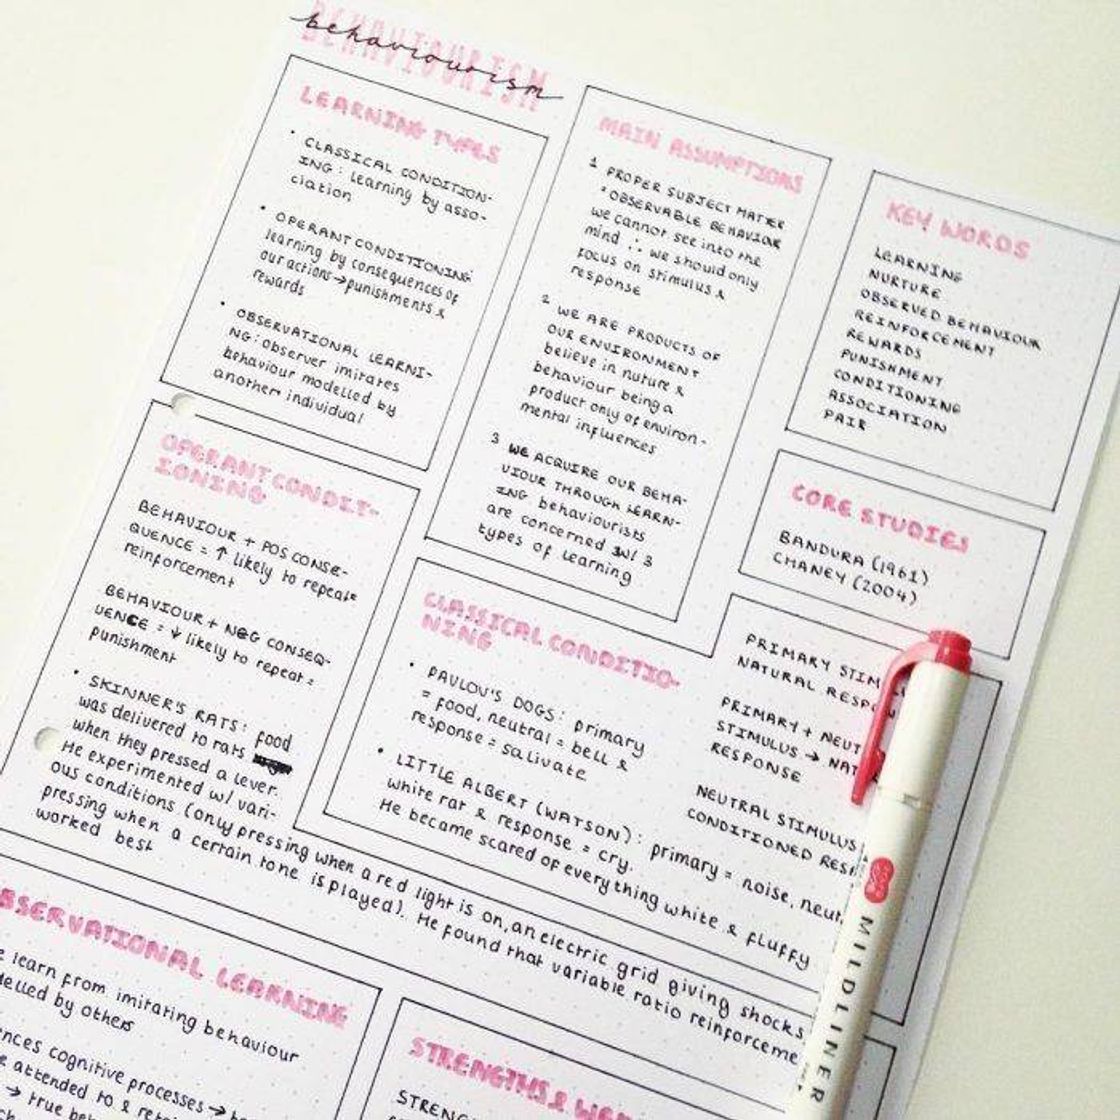 behaviourism
BEHAVIOURISM
LEARNING TYPES
• CLASSICAL CONDITION-
ING: learning by asso-
ciation
• OPERANT CONDITIONING
learning by consequences of
our actions → punishments &
rewards
• OBSERVATIONAL LEARNI-
NG: observer imitates
behaviour modelled by
another individual
MAIN ASSUMPTIONS
1 PROPER SUBJECT MATTER
= OBSERVABLE BEHAVIOUR
we cannot see into the
mind ∴ we should only
focus on stimulus &
response
2 WE ARE PRODUCTS OF
OUR ENVIRONMENT
believe in nuture &
behaviour being a
product only of environ-
mental influences
3 WE ACQUIRE OUR BEHA-
VIOUR THROUGH LEARN-
ING behaviourists
are concerned w/ 3
types of learning
KEY WORDS
LEARNING
NURTURE
OBSERVED BEHAVIOUR
REINFORCEMENT
REWARDS
PUNISHMENT
CONDITIONING
ASSOCIATION
PAIR
CORE STUDIES
BANDURA (1961)
CHANEY (2004)
OPERANT CONDIT-
IONING
BEHAVIOUR + POS CONSE-
QUENCE = ↑ likely to repeat =
reinforcement
BEHAVIOUR + NEG CONSEQ-
UENCE = ↓ likely to repeat =
punishment
• SKINNER'S RATS: food
was delivered to rats
when they pressed a lever.
He experimented w/ vari-
ous conditions (only pressing when a red light is on, an electric grid giving shocks,
pressing when a certain tone is played). He found that variable ratio reinforceme
worked best
CLASSICAL CONDITIO-
NING
• PAVLOV'S DOGS: primary
= food, neutral = bell &
response = salivate
• LITTLE ALBERT (WATSON): primary = noise, neut
white rat & response = cry.
He became scared of everything white & fluffy
PRIMARY STIM
NATURAL RESPON
PRIMARY + NEUT
STIMULUS → NAT
RESPONSE
NEUTRAL STIMULUS
CONDITIONED RESP
OBSERVATIONAL LEARNING
e learn from imitating behaviour
delled by others
ences cognitive processes →
attended to &
→ true
STRENGTHS &
STREN
MILDLINER